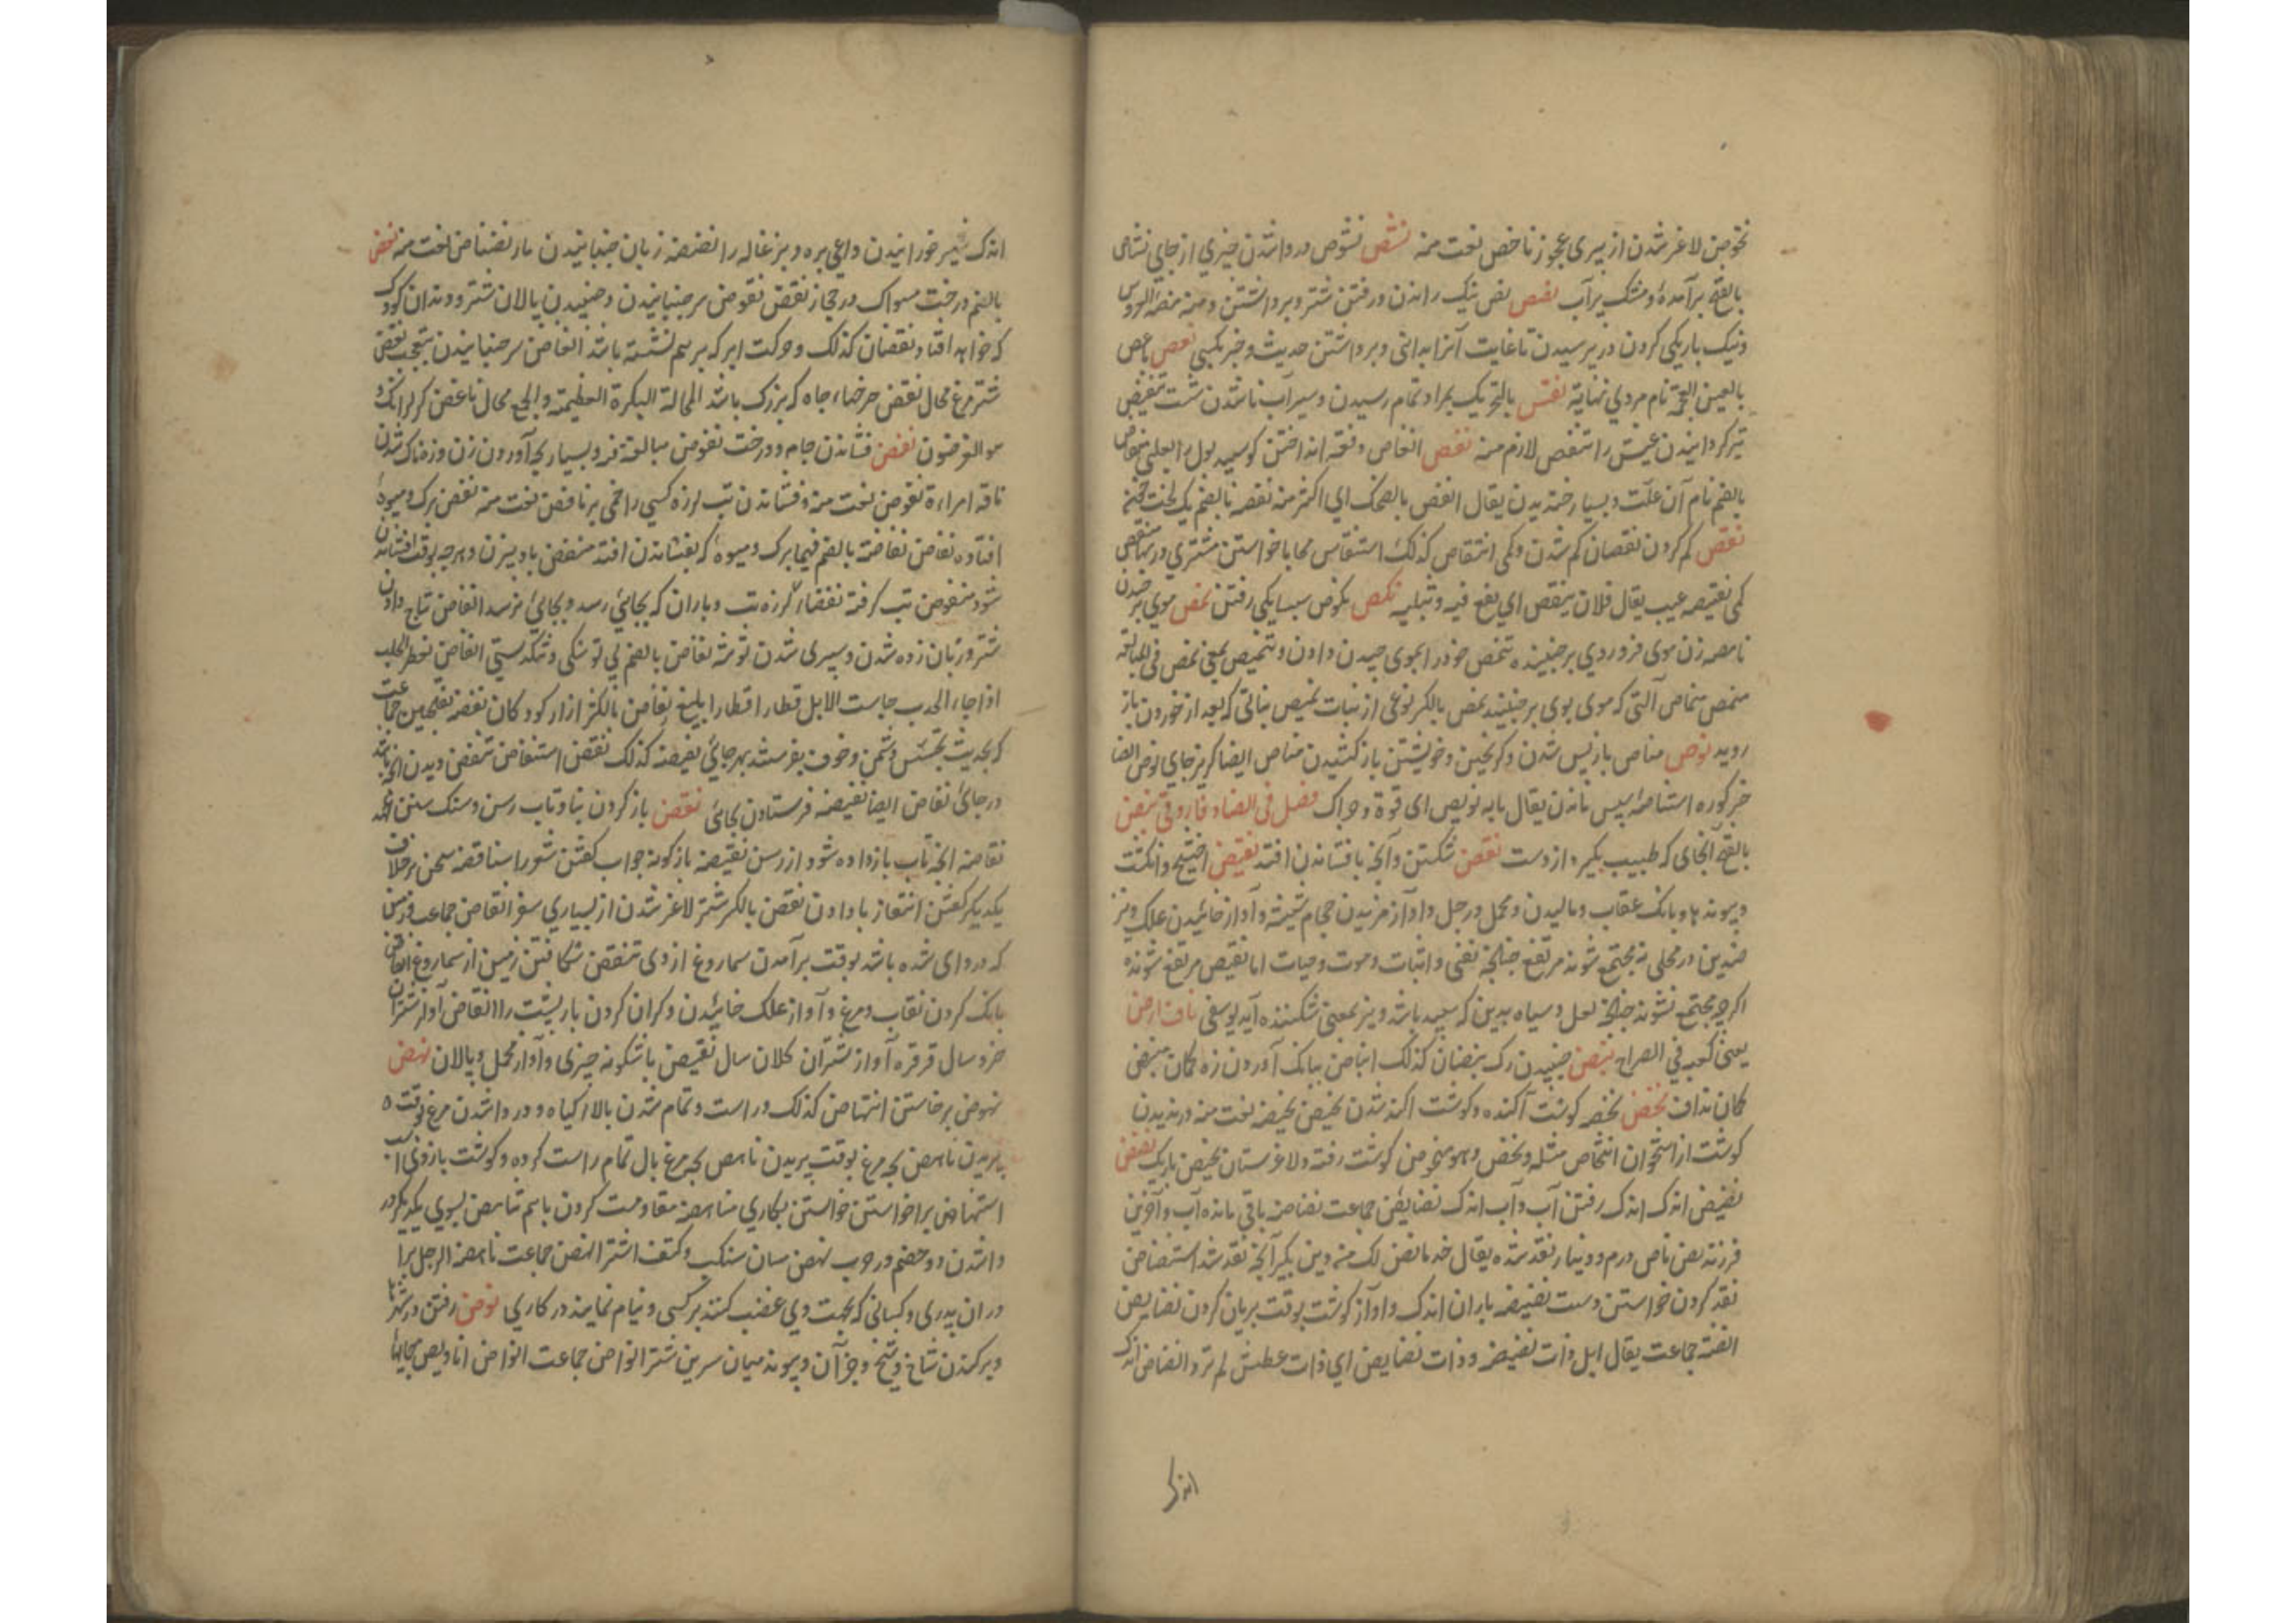 نخوص لاغر شدن از پیری عجوز ناخص نعت منه نشص نشوص در داشدن چیزی از جای نشاص
بالفتح برآمده و مشک پرآب نصص نص نیک راندن و رفتن شتر و برداشتن و منه منصة العروس
و نیک باریکی کردن در پرسیدن تا غایت آنرا بدانی و برداشتن حدیث و خبر بکسی نغص ناغص
بالغین المعجمة نام مردی نهایة نغص بالتحریک بمراد تمام رسیدن و سیرآب ناشدن شت تنغیص
تیره گردانیدن عیش را تنغص لازم منه نفص انفاص دفعه انداختن گوسپند بول را بعلتی نفاص
بالضم نام آن علّت و بسیار خندیدن یقال انفص بالضحک ای اکثر منه نفصه بالضم یک لخت
نقص کم کردن نقصان کم شدن و کمی انتقاص کذلک استنقاص محابا خواستن مشتری در بها منقص
کمی نقیصه عیب یقال فلان ینتقص ای یقع فیه و یثلبه نکص نکوص سپسایکی رفتن نمص موی برچیدن
نامصه زن موی فرو روی برچیننده تنمص خود را بموی چیدن دادن و تنمیص بمعنی نمص فی المبالغة
منمص منماص آلتی که موی بوی برچینند نمص بالکسر نوعی از نبات نمیص نباتی که بعد از خوردن باز
روید نوص مناص باز پس شدن و گریختن و خویشتن باز کشیدن مناص ایضا گریزجای نوص ایضا
خر گوره استنامه پس ماندن یقال ما به نویص ای قوة و حراک فصل فی الضاد فاروقی نبض
بالفتح آنجای که طبیب بگیرد از دست نقض شکستن و آنچه بافشاندن افتد نقیض
و پیوندها و بانک عقاب و مالیدن و محمل و رحل و آواز مزیدن حجام شیشه و آواز خائیدن علک و نیز
ضدین در محلی نه مجتمع شوند مرتفع چنانچه نفی و اثبات و موت و حیات اما نقیض مرتفع شونده
اگرچه مجتمع نشوند چنانچه لعل و سیاه بدین که سپید باشد و نیز بمعنی شکننده آید یوسفی ناف ارض
یعنی کعبه فی الصراح نبض جنبیدن رک نبضان کذلک انباض ببانک آوردن زه کمان منبض
کمان نداف نحض نحضه گوشت آکنده و گوشت اکند شدن نحیض نحیضه نعت منه درندیدن
گوشت از استخوان انتحاض مثله و نحض و هو منحوض گوشت رفته و لاغر سنان نحیض باریک نضض
نضیض اندک اندک رفتن آب و آب اندک نضایض جماعت نضاضه باقی مانده آب و آخرین
فرزند نض ناض درم و دینار نقد شده یقال خذ ما نض لک من دین بگیر آنچه نقد شد استنضاض
نقد کردن خواستن دست نضیضه باران اندک و آواز گوشت بوقت بریان کردن نضایض
انضه جماعت یقال ابل ذات نضیضه و ذات نضایض ای ذات عطش لم ترو انضاض اندک
اندک
اندک شیر خورانیدن داعی بره و بزغاله را نضنضه زبان جنبانیدن مار نضناض نعت منه نغض
بالضم درخت مسواک در حجاز نغض نغوض سر جنبانیدن و جنبیدن پالان شتر و دندان کودک
که خواهد افتاد نغضان کذلک و حرکت ابر که بر هم نشسته باشد انغاض سر جنبانیدن بتعجب نغض
شترمرغ محال نغض چرخهاء چاه که بزرک باشد المحالة البکرة العظیمة والجمع محال ناغض کر کرانک و
هو الغرضوف نفض فشاندن جامه و درخت نفوض مبالغة فرو بسیار بچه آوردن زن و زهناک شدن
ناقه امراءة نفوض نعت منه و فشاندن تب لرزه کسی را حمی برنافض نعت منه نفض برک و میوه
افتاده نفاض نفاضة بالضم فیما برک و میوه که بفشاندن افتد منفض بادبیزن و هرچه بوقت افشاندن
شود منفوض تب گرفته نفضاء لرزه تب و باران که بجایی رسد و بجایی نرسد انفاض نتاج دادن
شتر و زبان زده شدن و سپری شدن توشه نفاض بالضم بی توشکی و تنکدستی النفاض یقطر الجلب
اذا جاء الجدب جلبت الابل قطارا قطارا للبیع نفاض بالکسر ازار کودکان نفضه نفیضه جماعت
که بحدیث تجسّس دشمن و خوف بفرستند بهر جایی نفیضه کذلک نفض استنفاض تنفض دیدن آنچه باشد
در جای نفاض ایضا نفیضه فرستادن بجائی نقض باز کردن بنا و تاب رسن و شکستن عهد
نقاضه آنچه تاب باز داده شود از رسن نقیضه بازگونه جواب گفتن شعر را مناقضه سخن برخلاف
یکدیگر گفتن انتقاض با دادن نقض بالکسر شتر لاغر شدن از بسیاری سفر انقاض جماعت و زمین
که در وای شده باشد بوقت برآمدن سماروغ از وی تنقض شکافتن زمین از سماروغ انقاض
بانک کردن عقاب و مرغ و آواز علک خائیدن و گران کردن بار پشت را انقاض آواز شتران
خردسال قرقره آواز شتران کلان سال نقیض باشکونه چیزی و آواز محمل و پالان نهض
نهوض برخاستن انتهاض کذلک و راست و تمام شدن بالا گیاه و در داشدن مرغ بوقت
پریدن ناهض بچه مرغ بوقت پریدن ناهض بچه مرغ بال تمام راست کرده و گوشت بازوی اسب
استنهاض برا خواستن خواستن بکاری مناهضه مقاومت کردن باهم تناهض بسوی یکدیگر در
داشدن دو خصم در حرب نهض میان منکب و کتف اشتر انهض جماعت ناهضة الرجل برا
دران پدری و کسانی که بجهت وی غضب کنند بر کسی و قیام نمایند در کاری نوض رفتن در شهرها
و برکندن شاخ و میخ و جز آن و پیوند میان سرین شتر انواض جماعت انواض اناویض بجایها